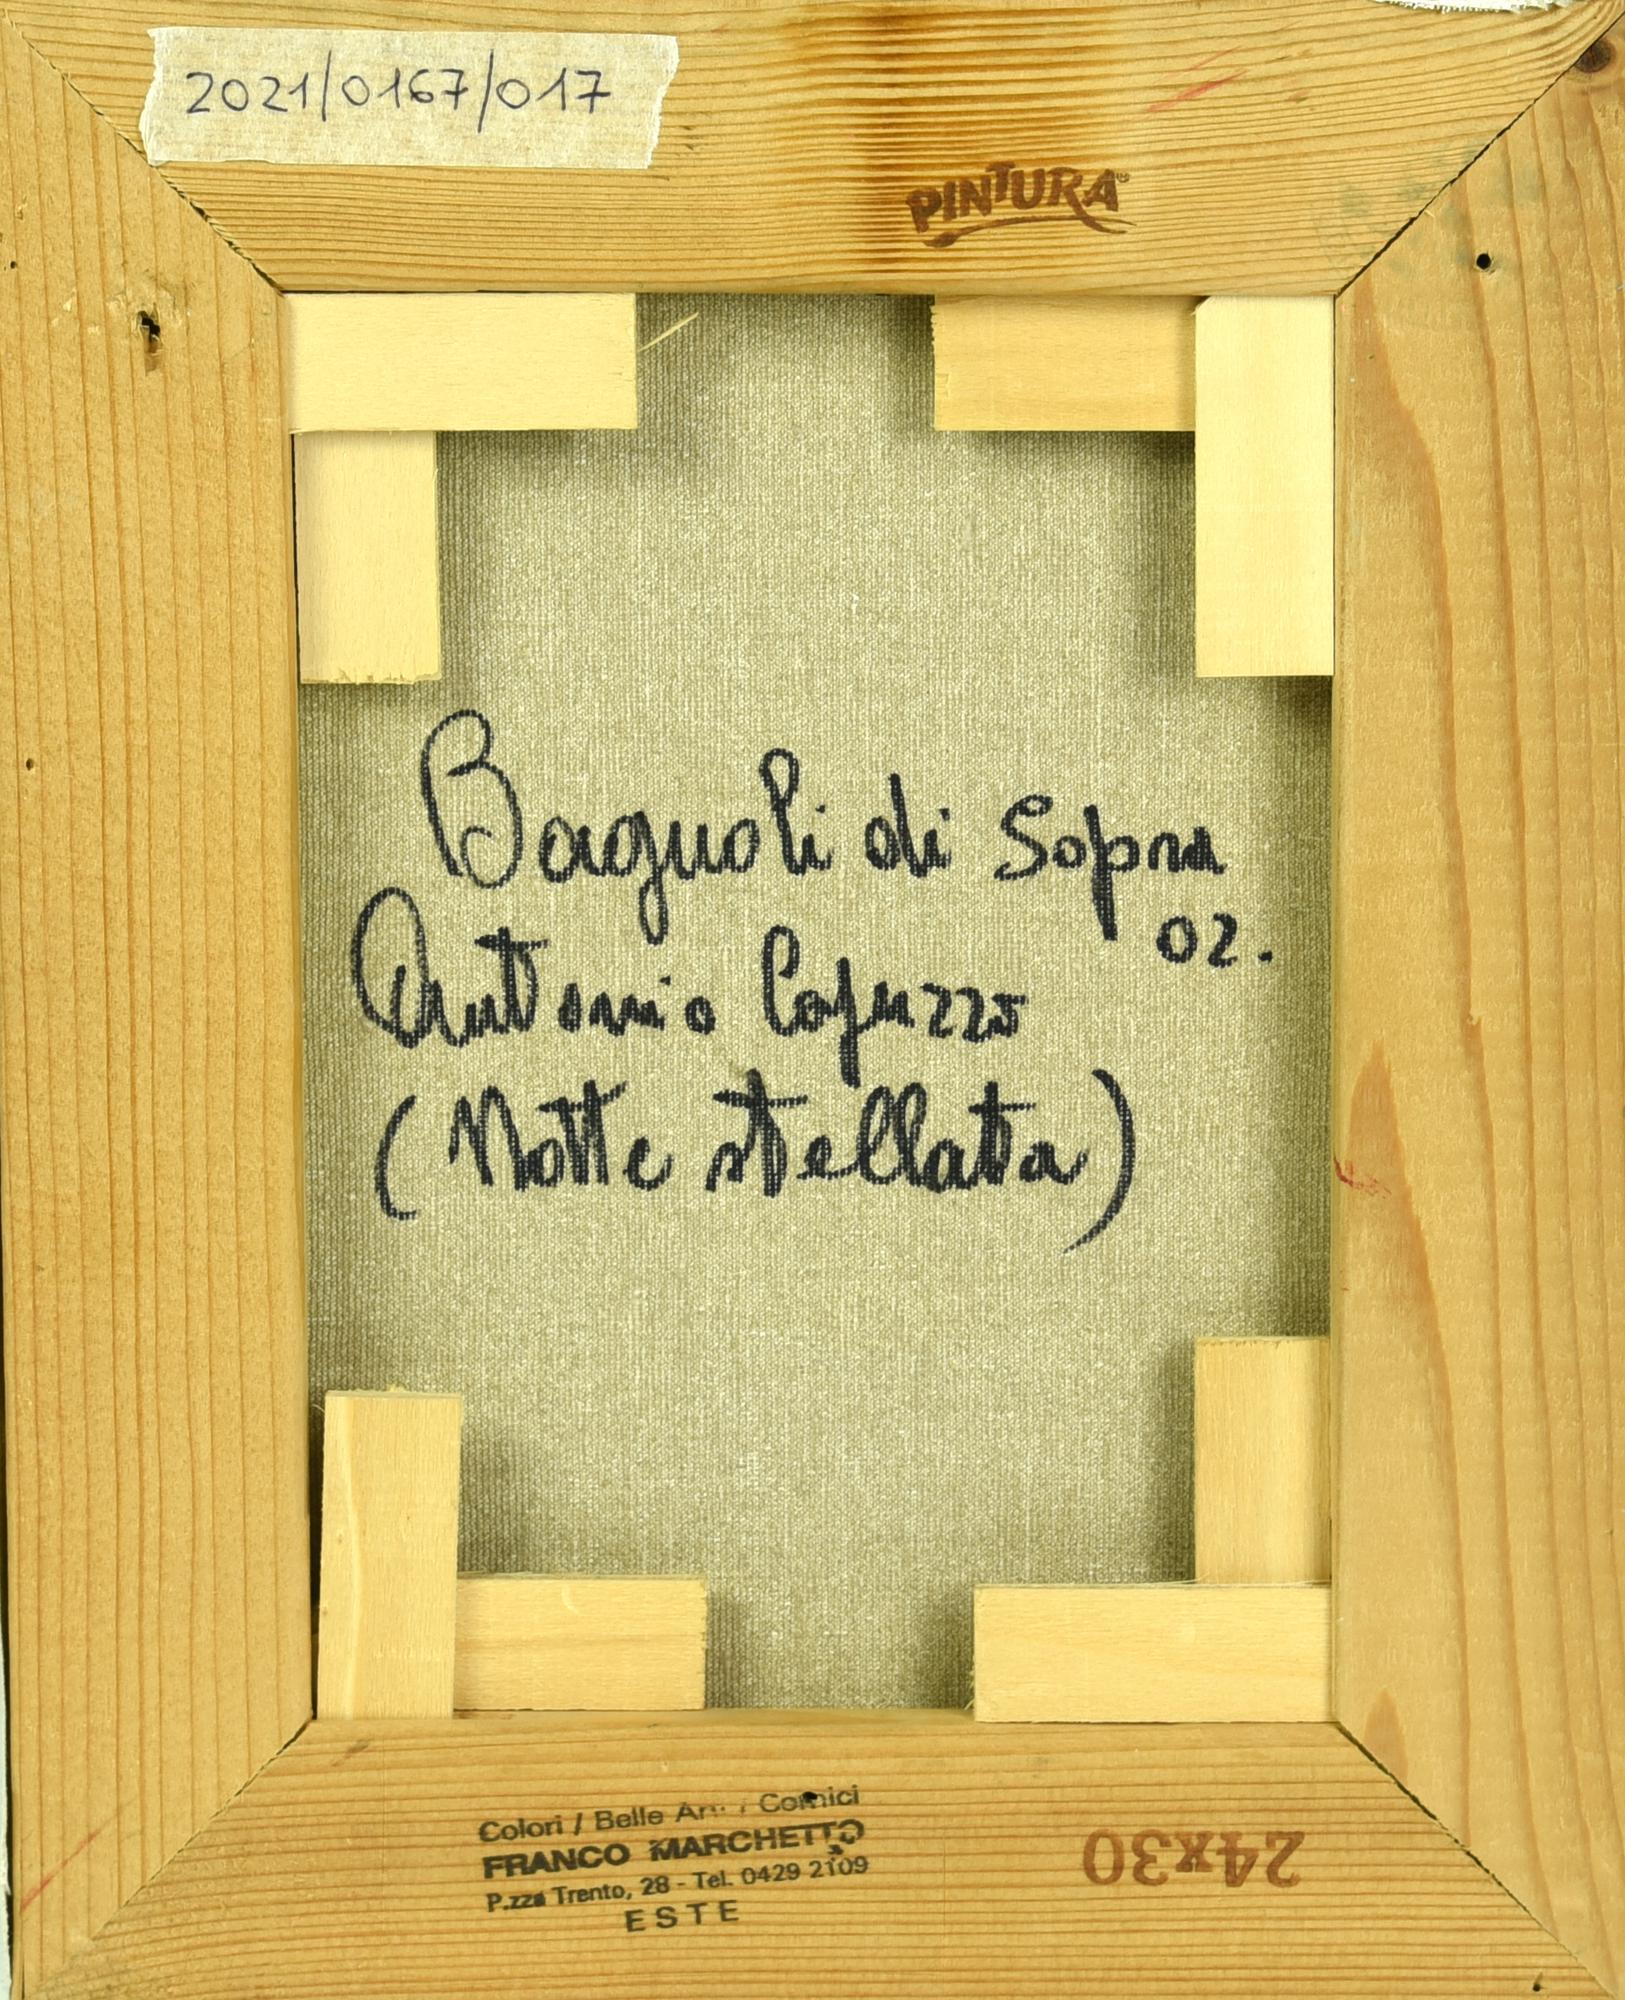 2021/0167/017
PINTURA
Bagnoli di Sopra
02.
Antonio Capuzzo
(Notte stellata)
Colori / Belle Arti / Cornici
FRANCO MARCHETTO
P.zza Trento, 28 - Tel. 0429 2109
ESTE
24x30